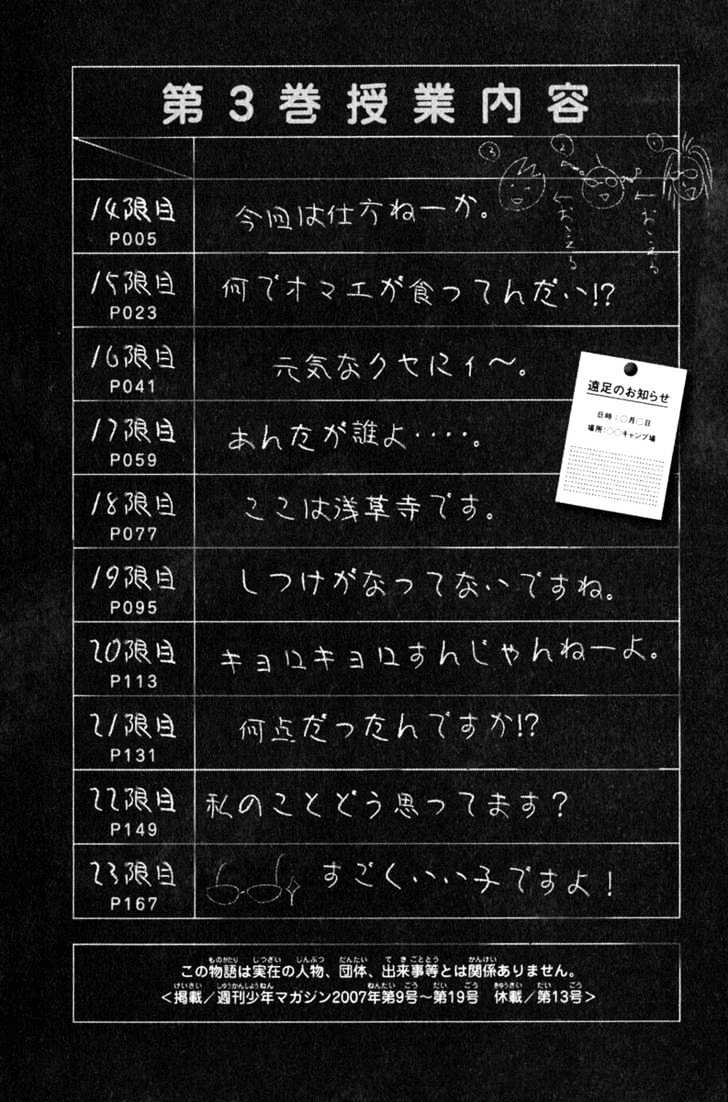 第3巻授業内容
③ ② ①
←おこえる ←おこえる
14限目 今回は仕方ねーか。
P005
15限目 何でオマエが食ってんだい!?
P023
16限目 元気なクセにィ〜。
P041
17限目 あんたが誰よ‥‥。
P059
18限目 ここは浅草寺です。
P077
19限目 しつけがなってないですね。
P095
20限目 キョロキョロすんじゃんねーよ。
P113
21限目 何点だったんですか!?
P131
22限目 私のことどう思ってます?
P149
23限目 すごくいい子ですよ!
P167
遠足のお知らせ
日時:○月○日
場所:○○キャンプ場
この物語は実在の人物、団体、出来事等とは関係ありません。
<掲載/週刊少年マガジン2007年第9号〜第19号 休載/第13号>